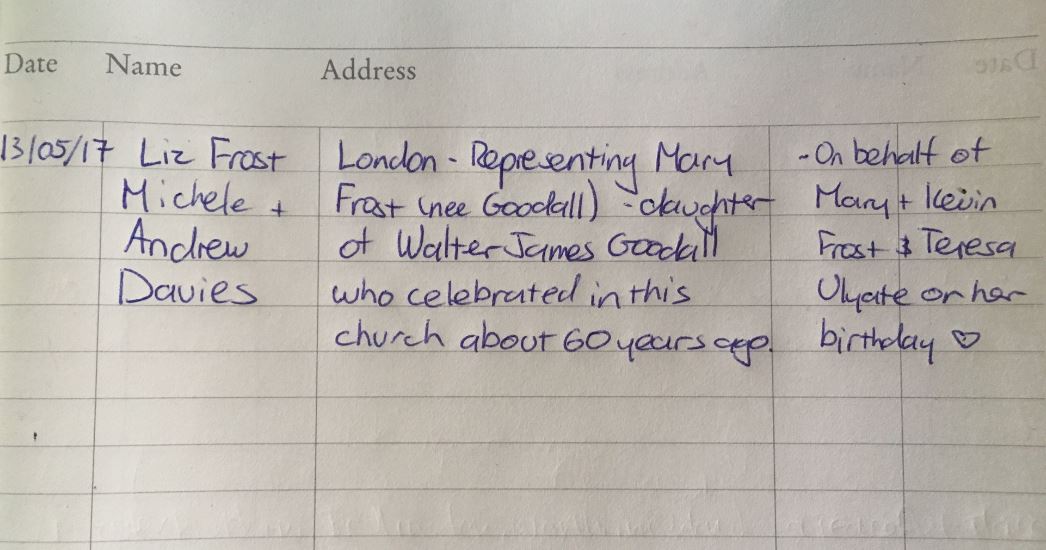 Date Name Address
13/05/17 Liz Frost London - Representing Mary - On behalf of
Michele + Frost (nee Goodall) - daughter Mary + Kevin
Andrew of Walter James Goodall Frost & Teresa
Davies who celebrated in this Ulyate on her
church about 60 years ago. birthday ♡